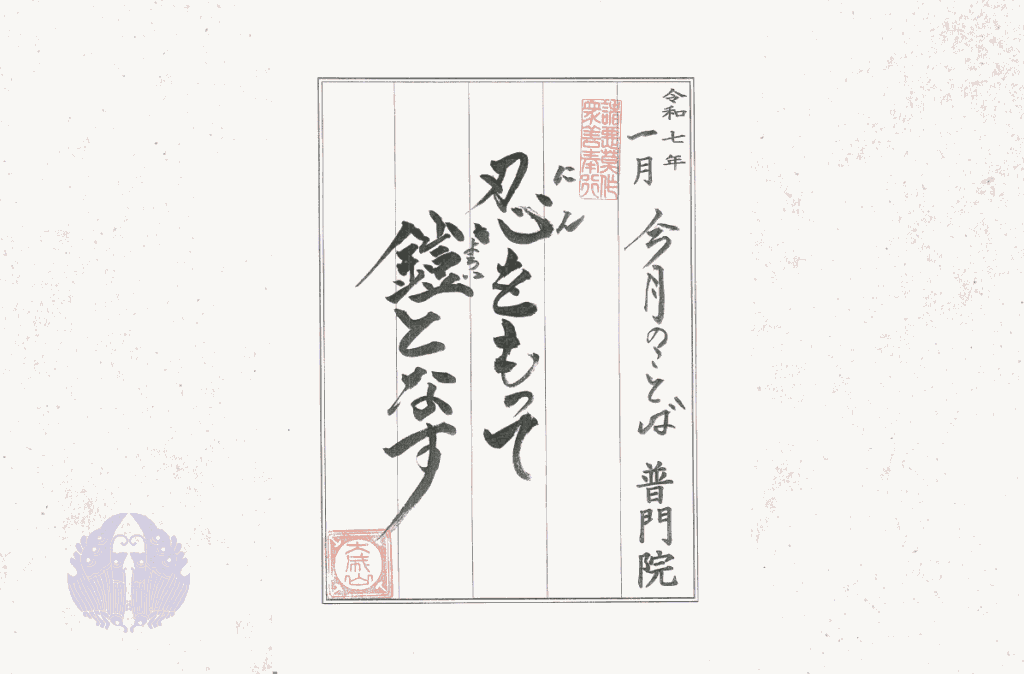 令和七年
一月
今月のことば
普門院
諸悪莫作
衆善奉行
忍をもって
にん
鎧となす
よろい
大歳山